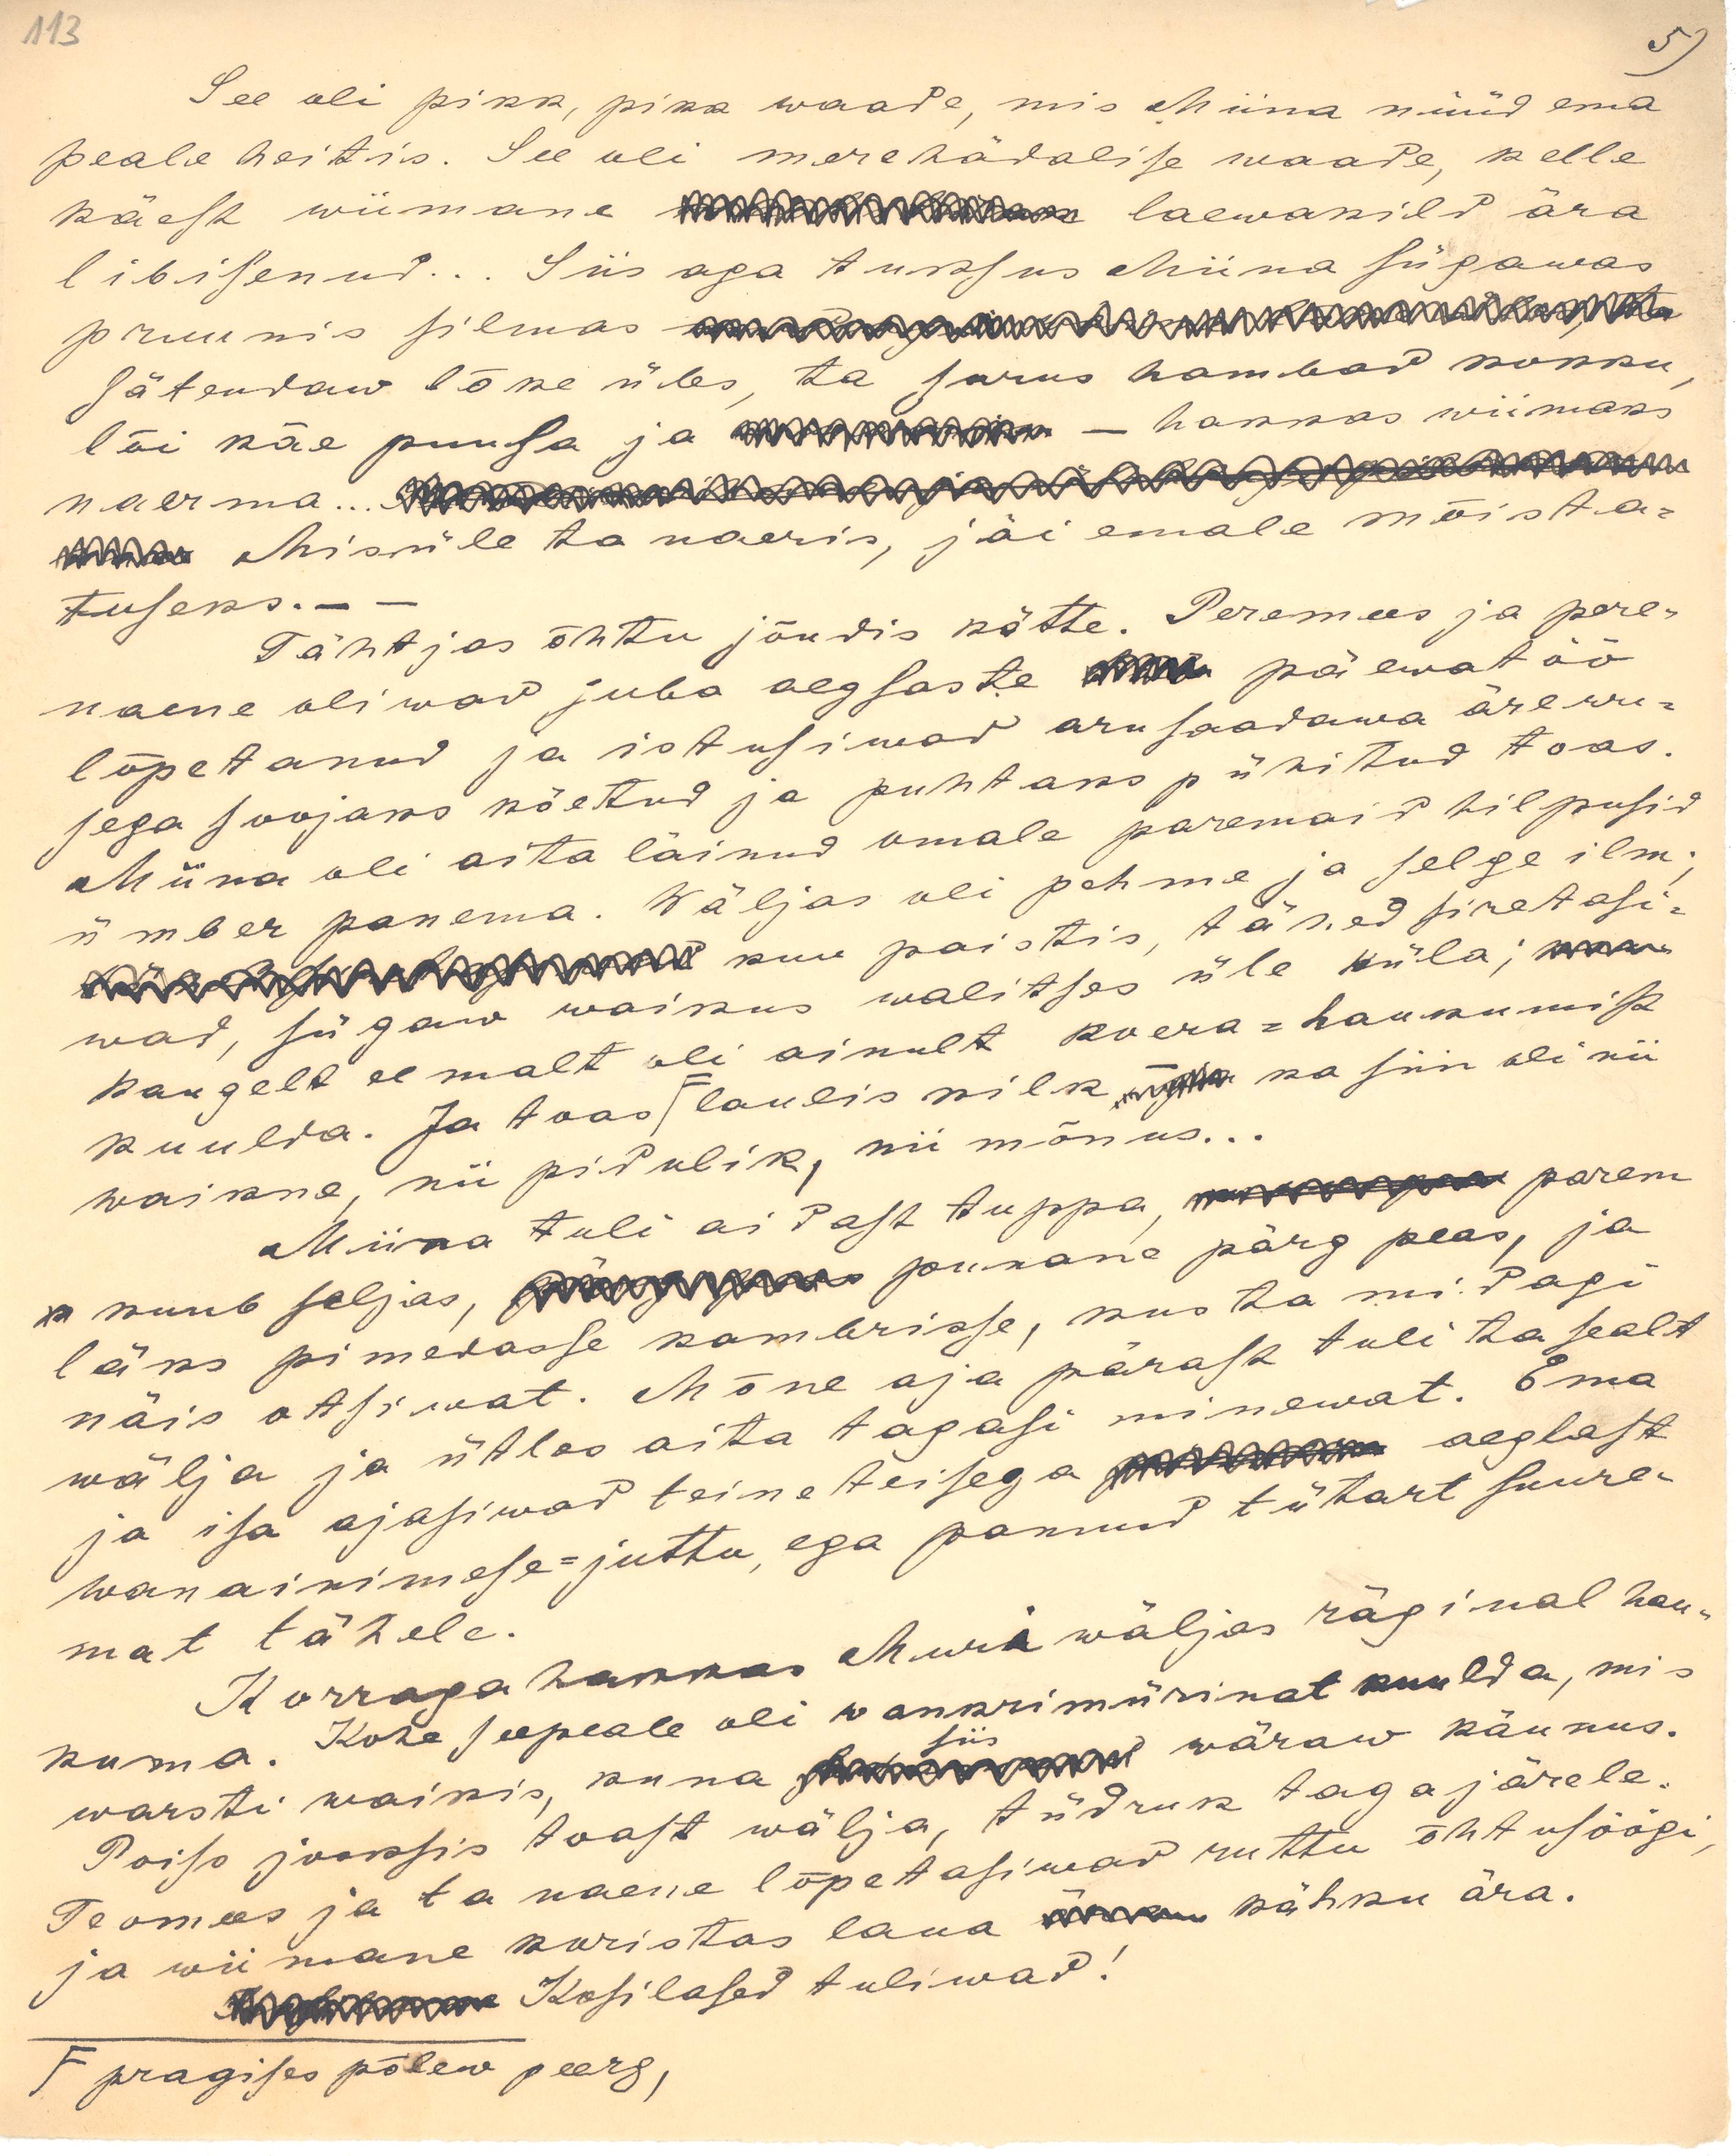 113
5)
See oli pikk, pikk waade, mis Miina nüüd ema
peale heitis. See oli merehädalise waade, kelle
käest wiimane laewakild ära
libisenud... Siis aga tuksus Miina sügawas
pruunis silmas
sätendaw lõke üles, ta surus hambad kokku,
lõi käe puusa ja — hakkas wiimaks
naerma...
Misüle ta naeris, jäi emale mõista=
tuseks. — —
Tähtjas õhtu jõudis kätte. Peremees ja pere=
naene oliwad juba aegsaste päewatöö
lõpetanud ja istusiwad arusaadawa ärewu=
sega soojaks köetud ja puhtaks pühitud toas.
Miina oli aita läinud omale paremaid hilpusid
ümber panema. Wäljas oli pehme ja selge ilm;
kuu paistis, tähed siretasi=
wad, sügaw waikus walitses üle küla;
kaugelt eemalt oli ainult koera=haukumist
kuulda. Ja toas F laulis kilk, ka siin oli nii
waikne, nii pidulik, nii mõnus...
Miina tuli aidast tuppa, parem
kuub seljas, punane pärg peas, ja
läks pimedasse kambrisse, kus ta midagi
näis otsiwat. Mõne aja pärast tuli ta sealt
wälja ja ütles aita tagasi minewat. Ema
ja isa ajasiwad teineteisega aeglast
wanainimese=juttu, ega pannud tütart suure=
mat tähele.
Korraga hakkas Muri wäljas räginal hau=
kuma. Kohe seepeale oli wankrimürinat kuulda, mis
warsti waikis, kuna siis wäraw käunus.
Poiss jooksis toast wälja, tüdruk taga järele.
Teomees ja ta naene lõpetasiwad ruttu õhtusöögi,
ja wiimane koristas laua kähku ära.
Kosilased tuliwad!
F pragises põlew peerg,